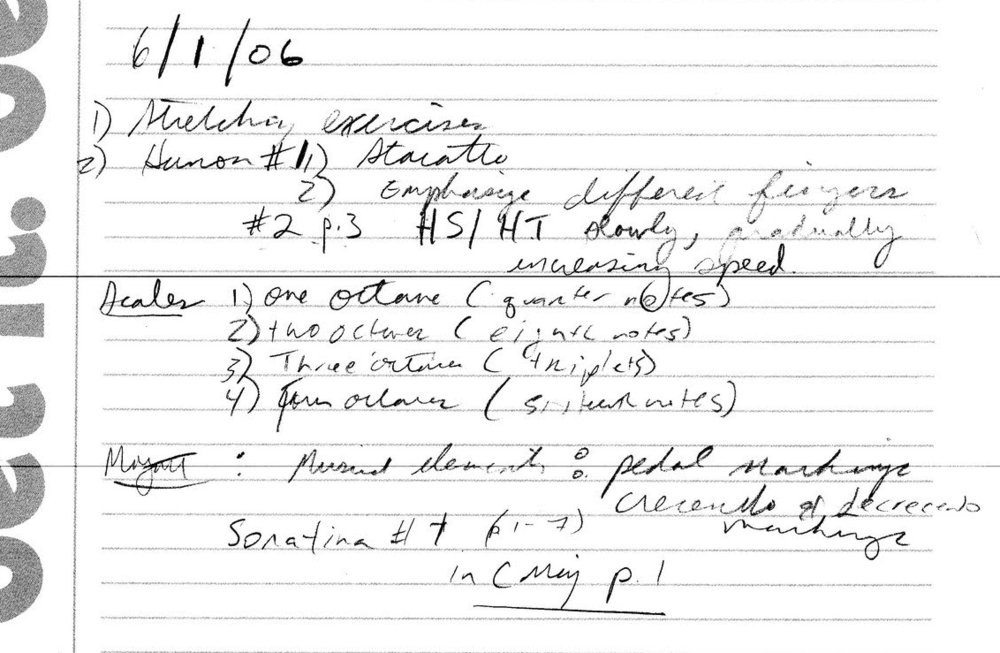 6/1/06
1) Stretching exercises
2) Hanon #1 1) Stacatto
2) Emphasize different fingers
#2 p.3 HS/HT slowly, gradually
increasing speed.
Scales 1) one octave (quarter notes)
2) two octaves (eighth notes)
3) Three octaves (triplets)
4) four octaves (sixteenth notes)
Mozart : Musical elements : pedal markings
crecendo & decrecendo
markings
Sonatina # 1 (p 1-7)
in C Maj p. 1